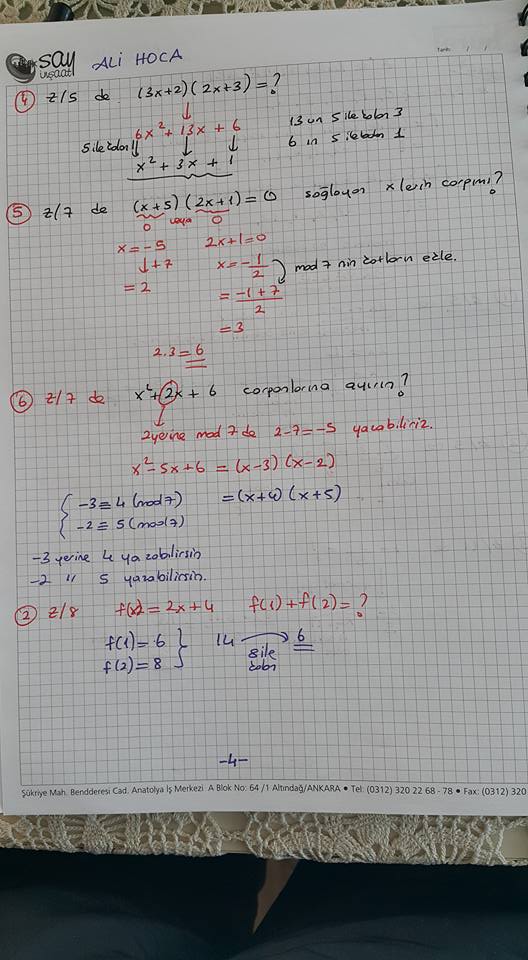 say
inşaat
ALİ HOCA
Tarih: / /
④ Z/5 de (3x+2)(2x+3)=?
6x²+13x+6
5 ile böl!!
13 ün 5 ile böl 3
6 ın 5 ile böl 1
x²+3x+1
⑤ Z/7 de (x+5)(2x+1)=0 sağlayan x lerin çarpımı?
0 veya 0
x=-5 2x+1=0
↓+7 x=-1/2
=2 =(-1+7)/2
mod 7 nin katların ekle.
=3
2.3=6
⑥ Z/7 de x²+2x+6 çarpanlarına ayırın?
2 yerine mod 7 de 2-7=-5 yazabiliriz.
x²-5x+6=(x-3)(x-2)
-3≡4 (mod7) =(x+4)(x+5)
-2≡5 (mod7)
-3 yerine 4 yazabilirsin
-2 " 5 yazabilirsin.
② Z/8 f(x)=2x+4 f(1)+f(2)=?
f(1)=6
f(2)=8
14 → 6
8 ile
-4-
Şükriye Mah. Bendderesi Cad. Anatolya İş Merkezi A Blok No: 64 /1 Altındağ/ANKARA • Tel: (0312) 320 22 68 - 78 • Fax: (0312) 320